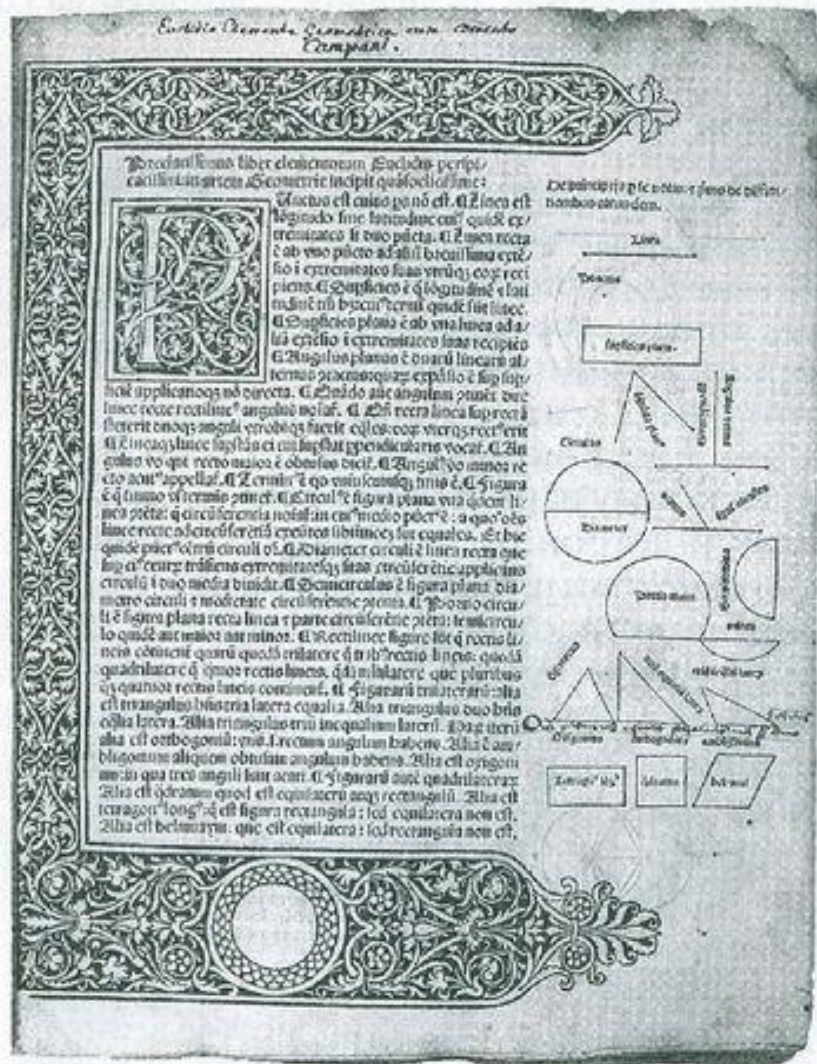 Euclidis Elementa Geometrica cum Comento
Campani.
Preclarissimus liber elementorum Euclidis perspi/
cacissimi: in artem Geometrie incipit quãfoelicissime:
Punctus est cuius ps nõ est. ¶ Linea est
lõgitudo sine latitudine cuiꝰ quidẽ ex/
tremitates si duo pũcta. ¶ Linea recta
ẽ ab vno pũcto ad aliũ breuissima extẽ/
sio i extremitates suas vtrũqꝫ eoꝝ reci
piens. ¶ Supficies ẽ q̃ lõgitudinẽ ⁊ lati
tudinẽ tm̃ hꝫ: cuiꝰ termi quidẽ sũt linee.
¶ Supficies plana ẽ ab vna linea ad a/
liã extẽsio i extremitates suas recipiẽs
¶ Angulus planus ẽ duarũ linearũ al/
ternus ꝯtactus: quaꝝ expãsio ẽ sup sup/
ficiẽ applicatioqꝫ nõ directa. ¶ Quãdo aũt angulum ꝯtinẽt due
linee recte rectilineꝰ angulus noiaf. ¶ Qñ recta linea sup rectã
steterit duoqꝫ anguli vtrobiqꝫ fuerit eq̃les: eoꝝ vterqꝫ rectꝰ erit
¶ Lineaqꝫ linee supstãs ei cui supstat ppendicularis vocaf. ¶ An
gulus vo qui recto maior ẽ obtusus dicif. ¶ Angulꝰ vo minor re
cto acutꝰ appellaf. ¶ Terminꝰ ẽ qd vniuscuiusqꝫ finis ẽ. ¶ Figura
ẽ q̃ tmino vl termis ꝯtinef. ¶ Circulꝰ ẽ figura plana vna q̃dem li/
nea ꝯtẽta: q̃ circũferentia noiaf: in cuiꝰ medio pũctꝰ ẽ: a quo oẽs
linee recte ad circũferẽtiã exeũtes sibiinuicẽ sut equales. Et hic
quidẽ pũctꝰ cẽtrũ circuli dꝛ. ¶ Diameter circuli ẽ linea recta que
sup eiꝰ centꝝ trãsiens extremitatesqꝫ suas circũferẽtie applicans
circulũ i duo media diuidit. ¶ Semicirculus ẽ figura plana dia/
metro circuli ⁊ medietate circũferentie ꝯtenta. ¶ Portio circu/
li ẽ figura plana recta linea ⁊ parte circũferẽtie ꝯtẽta: semicircu/
lo quidẽ aut maior aut minor. ¶ Rectilinee figure sũt q̃ rectis li/
neis cõtinent quarũ quedã trilatere q̃ tribꝰ rectis lineis: quedã
quadrilatere q̃ q̃tuor rectis lineis. q̃dã mltilatere que pluribus
qꝫ quatuor rectis lineis continent. ¶ Figurarũ trilaterarũ: alia
est triangulus hñs tria latera equalia. Alia triangulus duo hñs
eq̃lia latera. Alia triangulus triũ inequalium laterũ. Haꝝ iterũ
alia est orthogoniũ: vnũ .s. rectum angulum habens. Alia ẽ am/
bligonium aliquem obtusum angulum habens. Alia est oxigoni
um: in qua tres anguli sunt acuti. ¶ Figurarũ aũt quadrilateraꝝ
Alia est q̃dratum quod est equilaterũ atqꝫ rectangulũ. Alia est
tetragonꝰ longꝰ: q̃ est figura rectangula: sed equilatera non est.
Alia est helmuaym: que est equilatera: sed rectangula non est.
De principijs p se notis: ⁊ pmo de diffini/
tionibus earundem.
Linea
Punctus
Supficies plana
Circulus
Diameter
Portio maior